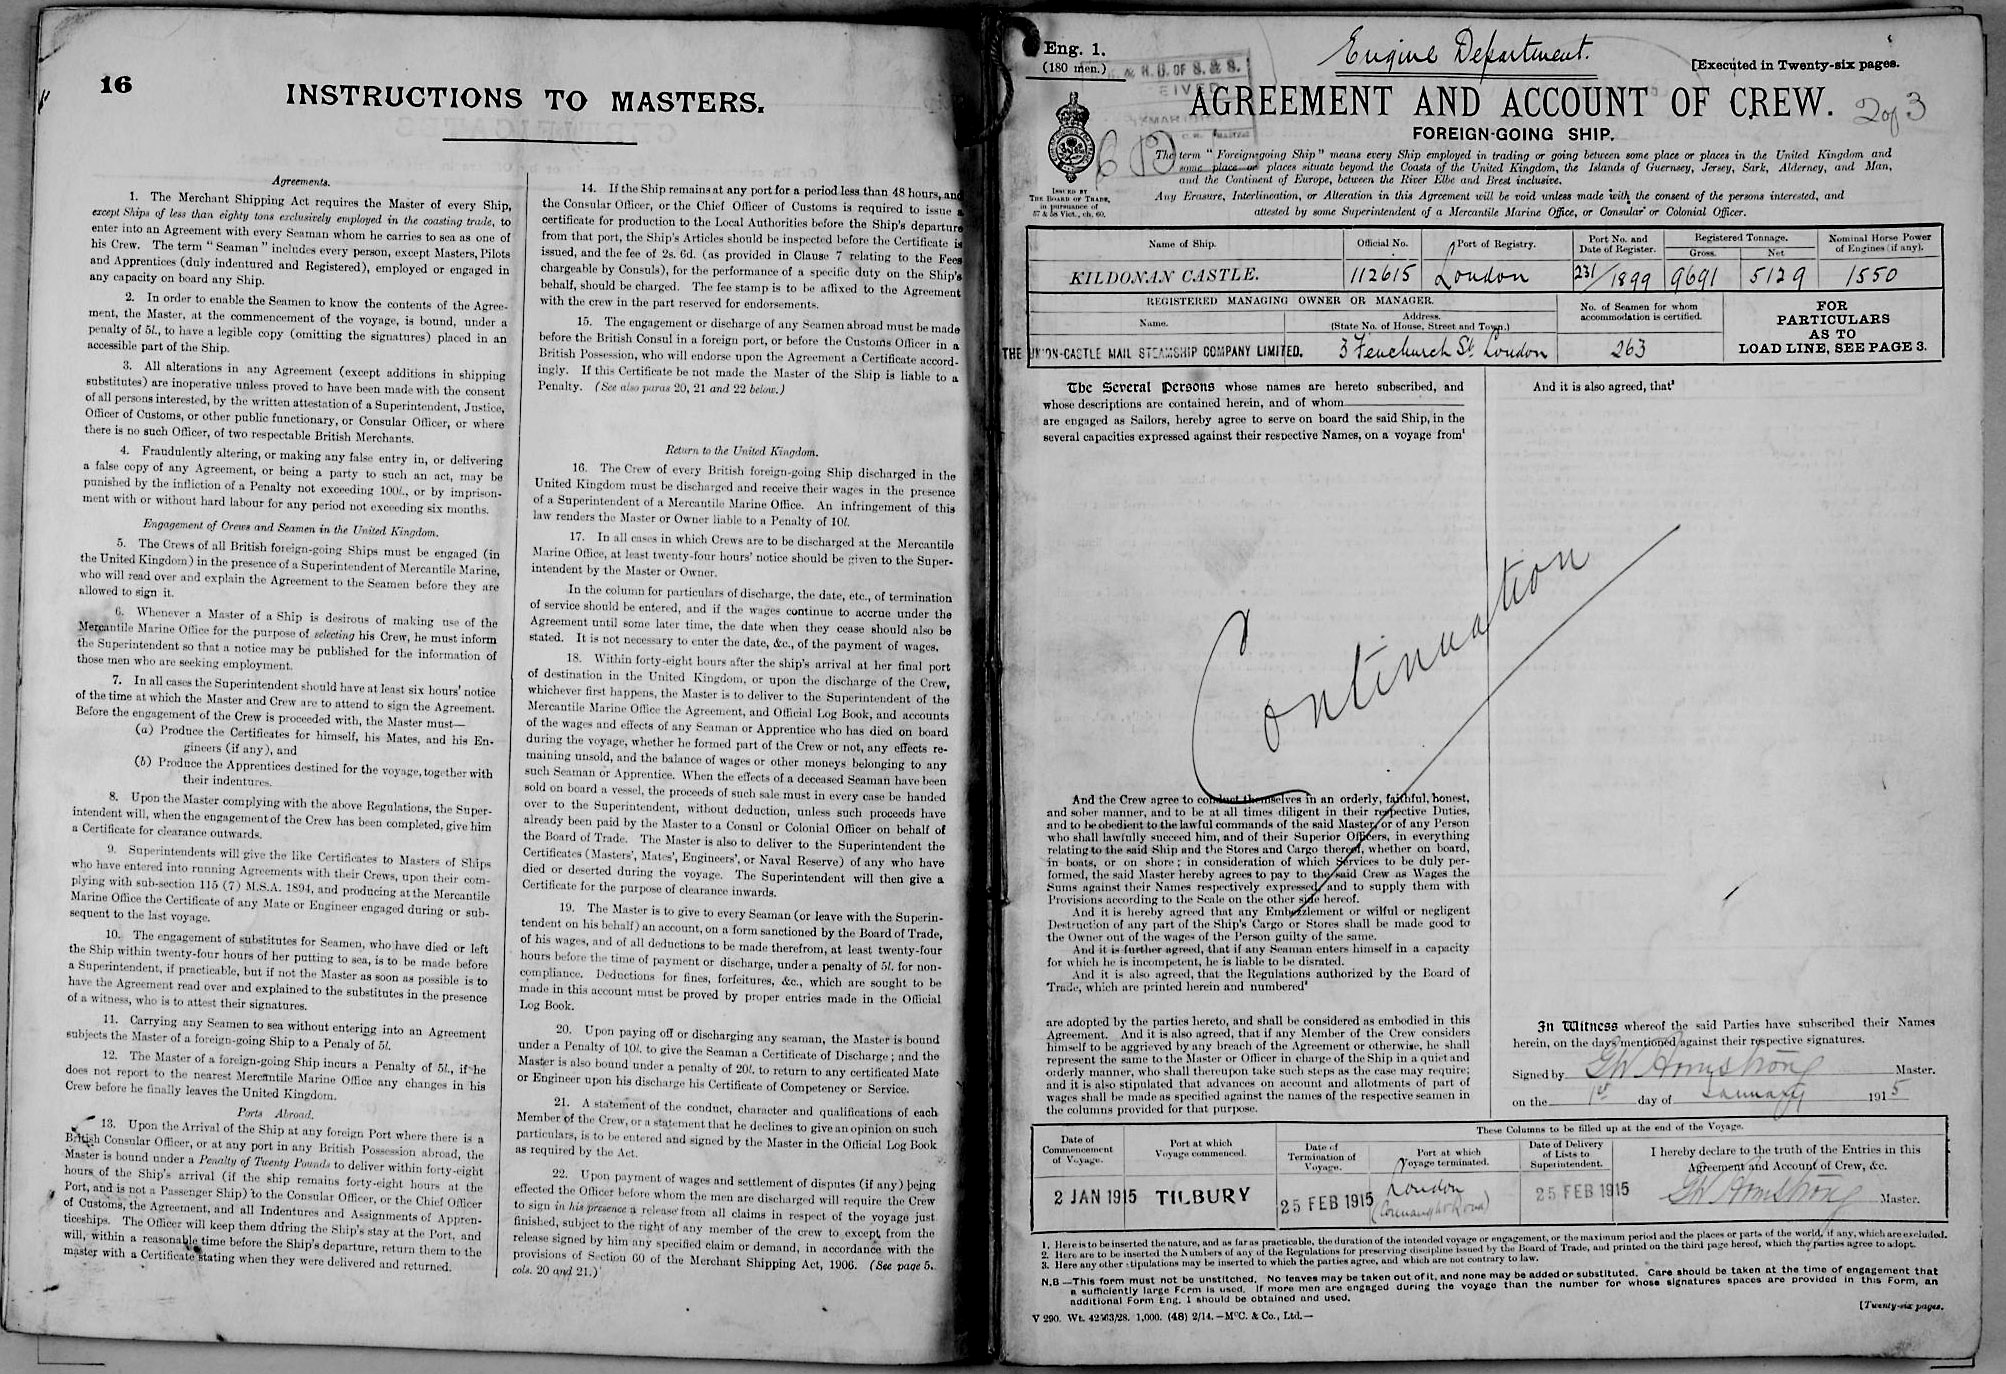 16
INSTRUCTIONS TO MASTERS.
Agreements.
1. The Merchant Shipping Act requires the Master of every Ship,
except Ships of less than eighty tons exclusively employed in the coasting trade, to
enter into an Agreement with every Seaman whom he carries to sea as one of
his Crew. The term "Seaman" includes every person, except Masters, Pilots
and Apprentices (duly indentured and Registered), employed or engaged in
any capacity on board any Ship.
2. In order to enable the Seamen to know the contents of the Agree-
ment, the Master, at the commencement of the voyage, is bound, under a
penalty of 5l., to have a legible copy (omitting the signatures) placed in an
accessible part of the Ship.
3. All alterations in any Agreement (except additions in shipping
substitutes) are inoperative unless proved to have been made with the consent
of all persons interested, by the written attestation of a Superintendent, Justice,
Officer of Customs, or other public functionary, or Consular Officer, or where
there is no such Officer, of two respectable British Merchants.
4. Fraudulently altering, or making any false entry in, or delivering
a false copy of any Agreement, or being a party to such an act, may be
punished by the infliction of a Penalty not exceeding 100l., or by imprison-
ment with or without hard labour for any period not exceeding six months.
Engagement of Crews and Seamen in the United Kingdom.
5. The Crews of all British foreign-going Ships must be engaged (in
the United Kingdom) in the presence of a Superintendent of Mercantile Marine,
who will read over and explain the Agreement to the Seamen before they are
allowed to sign it.
6. Whenever a Master of a Ship is desirous of making use of the
Mercantile Marine Office for the purpose of selecting his Crew, he must inform
the Superintendent so that a notice may be published for the information of
those men who are seeking employment.
7. In all cases the Superintendent should have at least six hours' notice
of the time at which the Master and Crew are to attend to sign the Agreement.
Before the engagement of the Crew is proceeded with, the Master must—
(a) Produce the Certificates for himself, his Mates, and his En-
gineers (if any), and
(b) Produce the Apprentices destined for the voyage, together with
their indentures.
8. Upon the Master complying with the above Regulations, the Super-
intendent will, when the engagement of the Crew has been completed, give him
a Certificate for clearance outwards.
9. Superintendents will give the like Certificates to Masters of Ships
who have entered into running Agreements with their Crews, upon their com-
plying with sub-section 115 (7) M.S.A. 1894, and producing at the Mercantile
Marine Office the Certificate of any Mate or Engineer engaged during or sub-
sequent to the last voyage.
10. The engagement of substitutes for Seamen, who have died or left
the Ship within twenty-four hours of her putting to sea, is to be made before
a Superintendent, if practicable, but if not the Master as soon as possible is to
have the Agreement read over and explained to the substitutes in the presence
of a witness, who is to attest their signatures.
11. Carrying any Seamen to sea without entering into an Agreement
subjects the Master of a foreign-going Ship to a Penaly of 5l.
12. The Master of a foreign-going Ship incurs a Penalty of 5l., if he
does not report to the nearest Mercantile Marine Office any changes in his
Crew before he finally leaves the United Kingdom.
Ports Abroad.
13. Upon the Arrival of the Ship at any foreign Port where there is a
British Consular Officer, or at any port in any British Possession abroad, the
Master is bound under a Penalty of Twenty Pounds to deliver within forty-eight
hours of the Ship's arrival (if the ship remains forty-eight hours at the
Port, and is not a Passenger Ship) to the Consular Officer, or the Chief Officer
of Customs, the Agreement, and all Indentures and Assignments of Appren-
ticeships. The Officer will keep them during the Ship's stay at the Port, and
will, within a reasonable time before the Ship's departure, return them to the
master with a Certificate stating when they were delivered and returned.
14. If the Ship remains at any port for a period less than 48 hours, and
the Consular Officer, or the Chief Officer of Customs is required to issue a
certificate for production to the Local Authorities before the Ship's departure
from that port, the Ship's Articles should be inspected before the Certificate is
issued, and the fee of 2s. 6d. (as provided in Clause 7 relating to the Fees
chargeable by Consuls), for the performance of a specific duty on the Ship's
behalf, should be charged. The fee stamp is to be affixed to the Agreement
with the crew in the part reserved for endorsements.
15. The engagement or discharge of any Seamen abroad must be made
before the British Consul in a foreign port, or before the Customs Officer in a
British Possession, who will endorse upon the Agreement a Certificate accord-
ingly. If this Certificate be not made the Master of the Ship is liable to a
Penalty. (See also paras 20, 21 and 22 below.)
Return to the United Kingdom.
16. The Crew of every British foreign-going Ship discharged in the
United Kingdom must be discharged and receive their wages in the presence
of a Superintendent of a Mercantile Marine Office. An infringement of this
law renders the Master or Owner liable to a Penalty of 10l.
17. In all cases in which Crews are to be discharged at the Mercantile
Marine Office, at least twenty-four hours' notice should be given to the Super-
intendent by the Master or Owner.
In the column for particulars of discharge, the date, etc., of termination
of service should be entered, and if the wages continue to accrue under the
Agreement until some later time, the date when they cease should also be
stated. It is not necessary to enter the date, &c., of the payment of wages.
18. Within forty-eight hours after the ship's arrival at her final port
of destination in the United Kingdom, or upon the discharge of the Crew,
whichever first happens, the Master is to deliver to the Superintendent of the
Mercantile Marine Office the Agreement, and Official Log Book, and accounts
of the wages and effects of any Seaman or Apprentice who has died on board
during the voyage, whether he formed part of the Crew or not, any effects re-
maining unsold, and the balance of wages or other moneys belonging to any
such Seaman or Apprentice. When the effects of a deceased Seaman have been
sold on board a vessel, the proceeds of such sale must in every case be handed
over to the Superintendent, without deduction, unless such proceeds have
already been paid by the Master to a Consul or Colonial Officer on behalf of
the Board of Trade. The Master is also to deliver to the Superintendent the
Certificates (Masters', Mates', Engineers', or Naval Reserve) of any who have
died or deserted during the voyage. The Superintendent will then give a
Certificate for the purpose of clearance inwards.
19. The Master is to give to every Seaman (or leave with the Superin-
tendent on his behalf) an account, on a form sanctioned by the Board of Trade,
of his wages, and of all deductions to be made therefrom, at least twenty-four
hours before the time of payment or discharge, under a penalty of 5l. for non-
compliance. Deductions for fines, forfeitures, &c., which are sought to be
made in this account must be proved by proper entries made in the Official
Log Book.
20. Upon paying off or discharging any seaman, the Master is bound
under a Penalty of 10l. to give the Seaman a Certificate of Discharge; and the
Master is also bound under a penalty of 20l. to return to any certificated Mate
or Engineer upon his discharge his Certificate of Competency or Service.
21. A statement of the conduct, character and qualifications of each
Member of the Crew, or a statement that he declines to give an opinion on such
particulars, is to be entered and signed by the Master in the Official Log Book
as required by the Act.
22. Upon payment of wages and settlement of disputes (if any) being
effected the Officer before whom the men are discharged will require the Crew
to sign in his presence a release from all claims in respect of the voyage just
finished, subject to the right of any member of the crew to except from the
release signed by him any specified claim or demand, in accordance with the
provisions of Section 60 of the Merchant Shipping Act, 1906. (See page 5.
cols. 20 and 21.)
Eng. 1.
(180 men.)
Engine Department.
[Executed in Twenty-six pages.
& R. G. OF S. & S.
AGREEMENT AND ACCOUNT OF CREW. 2 of 3
FOREIGN-GOING SHIP.
ISSUED BY
THE BOARD OF TRADE,
in pursuance of
57 & 58 Vict., ch. 60.
The term "Foreign-going Ship" means every Ship employed in trading or going between some place or places in the United Kingdom and
some place or places situate beyond the Coasts of the United Kingdom, the Islands of Guernsey, Jersey, Sark, Alderney, and Man,
and the Continent of Europe, between the River Elbe and Brest inclusive.
Any Erasure, Interlineation, or Alteration in this Agreement will be void unless made with the consent of the persons interested, and
attested by some Superintendent of a Mercantile Marine Office, or Consular or Colonial Officer.
Name of Ship. Official No. Port of Registry. Port No. and Date of Register. Registered Tonnage. Gross. Net Nominal Horse Power of Engines (if any).
KILDONAN CASTLE. 112615 London 231/1899 9691 5129 1550
REGISTERED MANAGING OWNER OR MANAGER.
Name. Address. (State No. of House, Street and Town.)
No. of Seamen for whom accommodation is certified.
THE UNION-CASTLE MAIL STEAMSHIP COMPANY LIMITED. 3 Fenchurch St. London 263
FOR
PARTICULARS
AS TO
LOAD LINE, SEE PAGE 3.
The Several Persons whose names are hereto subscribed, and
whose descriptions are contained herein, and of whom
are engaged as Sailors, hereby agree to serve on board the said Ship, in the
several capacities expressed against their respective Names, on a voyage from¹
And it is also agreed, that³
Continuation
And the Crew agree to conduct themselves in an orderly, faithful, honest,
and sober manner, and to be at all times diligent in their respective Duties,
and to be obedient to the lawful commands of the said Master, or of any Person
who shall lawfully succeed him, and of their Superior Officers, in everything
relating to the said Ship and the Stores and Cargo thereof, whether on board,
in boats, or on shore; in consideration of which Services to be duly per-
formed, the said Master hereby agrees to pay to the said Crew as Wages the
Sums against their Names respectively expressed, and to supply them with
Provisions according to the Scale on the other side hereof.
And it is hereby agreed that any Embezzlement or wilful or negligent
Destruction of any part of the Ship's Cargo or Stores shall be made good to
the Owner out of the wages of the Person guilty of the same.
And it is further agreed, that if any Seaman enters himself in a capacity
for which he is incompetent, he is liable to be disrated.
And it is also agreed, that the Regulations authorized by the Board of
Trade, which are printed herein and numbered²
are adopted by the parties hereto, and shall be considered as embodied in this
Agreement. And it is also agreed, that if any Member of the Crew considers
himself to be aggrieved by any breach of the Agreement or otherwise, he shall
represent the same to the Master or Officer in charge of the Ship in a quiet and
orderly manner, who shall thereupon take such steps as the case may require;
and it is also stipulated that advances on account and allotments of part of
wages shall be made as specified against the names of the respective seamen in
the columns provided for that purpose.
In Witness whereof the said Parties have subscribed their Names
herein, on the days mentioned against their respective signatures.
Signed by GW Armstrong Master.
on the 1st day of January 1915
These Columns to be filled up at the end of the Voyage.
Date of Commencement of Voyage. Port at which Voyage commenced. Date of Termination of Voyage. Port at which Voyage terminated. Date of Delivery of Lists to Superintendent. I hereby declare to the truth of the Entries in this Agreement and Account of Crew, &c.
2 JAN 1915 TILBURY 25 FEB 1915 London (Connaught Road) 25 FEB 1915 GW Armstrong Master.
1. Here is to be inserted the nature, and as far as practicable, the duration of the intended voyage or engagement, or the maximum period and the places or parts of the world, if any, which are excluded.
2. Here are to be inserted the Numbers of any of the Regulations for preserving discipline issued by the Board of Trade, and printed on the third page hereof, which the parties agree to adopt.
3. Here any other stipulations may be inserted to which the parties agree, and which are not contrary to law.
N.B.—This form must not be unstitched. No leaves may be taken out of it, and none may be added or substituted. Care should be taken at the time of engagement that
a sufficiently large Form is used. If more men are engaged during the voyage than the number for whose signatures spaces are provided in this Form, an
additional Form Eng. 1 should be obtained and used.
[Twenty-six pages.
V 290. Wt. 42563/28. 1,000. (48) 2/14.—McC. & Co., Ltd.—